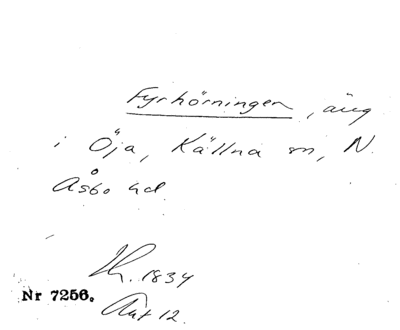 Fyrhörningen, äng
i Öja, Källna sn, N.
Åsbo hd.
1834
Nr 7256.
Akt 12.